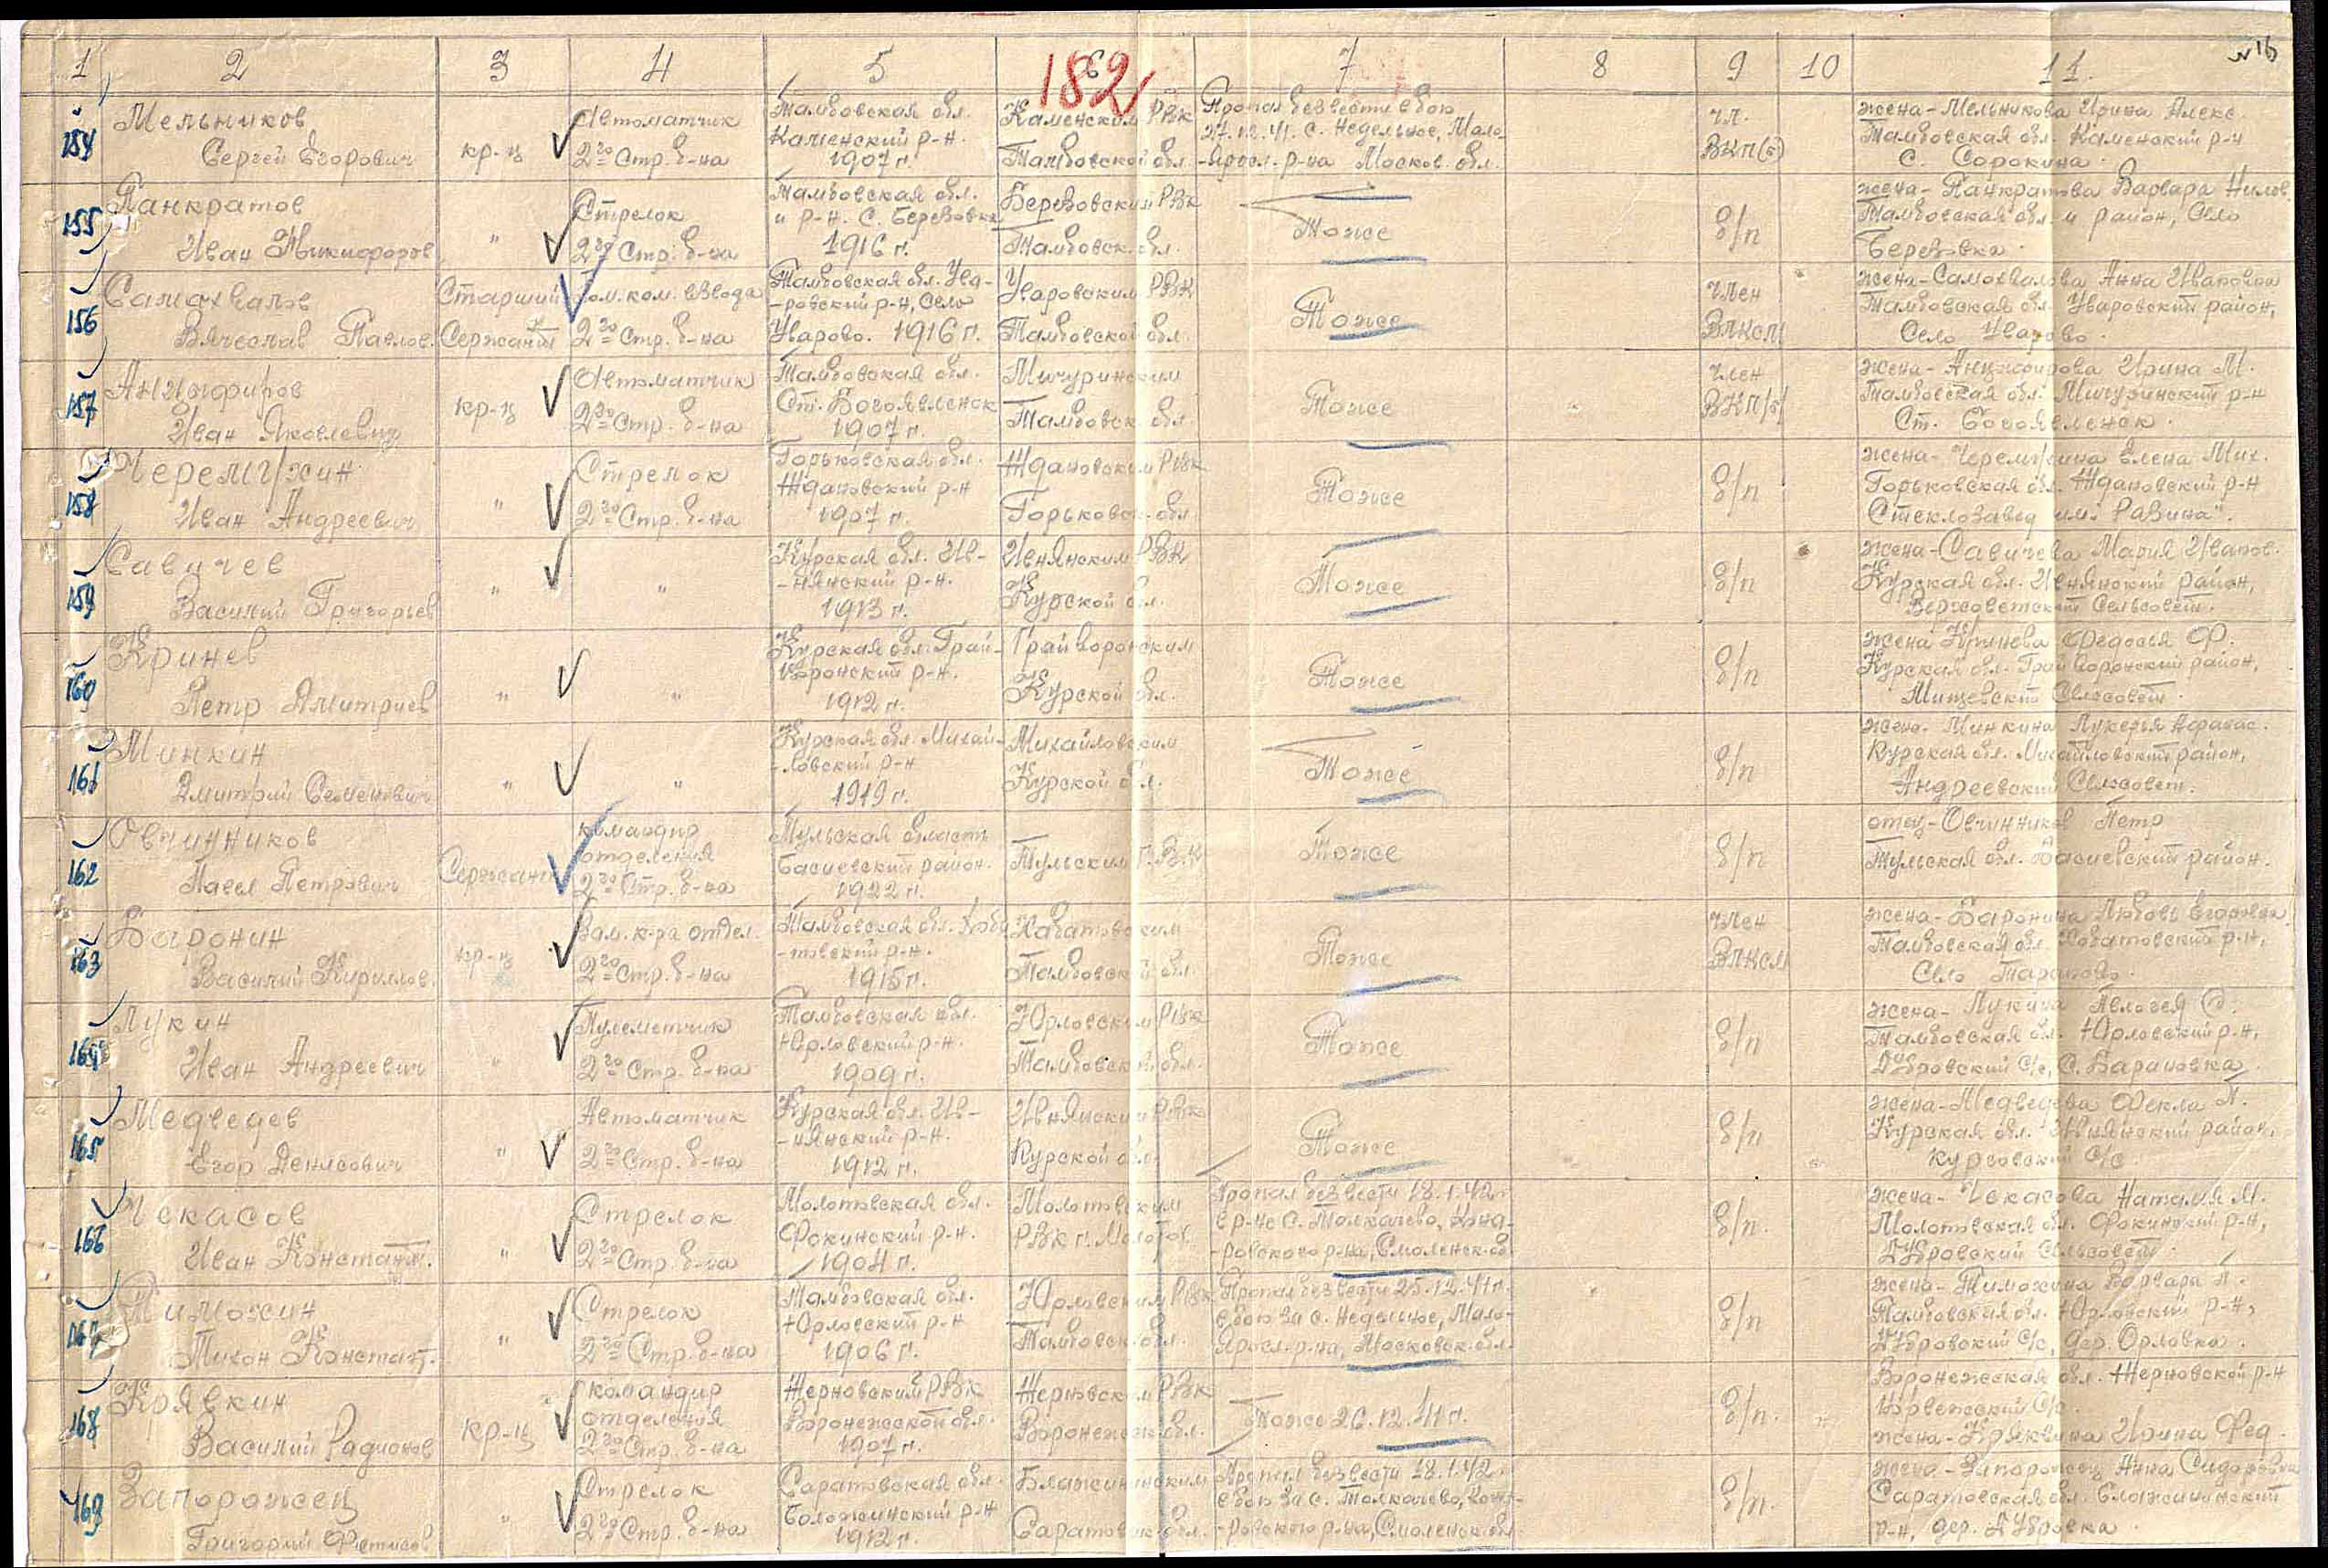 1 2 3 4 5 6 7 8 9 10 11.
182
№16
154 Мельников Сергей Егорович кр-ц Автоматчик 2го Стр. б-на Тамбовская обл. Каменский р-н. 1907 г. Каменским РВК Тамбовской обл. Пропал без вести в бою 27.12.41. с. Недельное, Мало-Яросл. р-на Москов. обл. чл. ВКП(б) жена - Мельникова Ирина Алекс. Тамбовская обл. Каменский р-н С. Сорокина.
155 Панкратов Иван Никифоров. " Стрелок 2го Стр. б-на Тамбовская обл. и р-н. С. Березовка 1916 г. Березовским РВК Тамбовск. обл. Тоже б/п жена - Панкратова Варвара Нилов. Тамбовская обл. и район, Село Березовка.
156 Самохвалов Вячеслав Павлов. Старший Сержант Пом. ком. взвода 2го Стр. б-на Тамбовская обл. Ува-ровский р-н, Село Уварово. 1916 г. Уваровским РВК Тамбовской обл. Тоже член ВЛКСМ жена - Самохвалова Анна Ивановна Тамбовская обл. Уваровский район, Село Уварово.
157 Анцифиров Иван Яковлевич кр-ц Автоматчик 2го Стр. б-на Тамбовская обл. Ст. Богоявленск 1907 г. Мичуринским Тамбовск. обл. Тоже член ВКП/б/ жена - Анцифирова Ирина М. Тамбовская обл. Мичуринский р-н Ст. Богоявленск.
158 Черемухин Иван Андреевич " Стрелок 2го Стр. б-на Горьковская обл. Ждановский р-н 1907 г. Ждановским РВК Горьковск. обл. Тоже б/п жена - Черемухина Елена Мих. Горьковская обл. Ждановский р-н Стеклозавод им. "Разина".
159 Савичев Василий Григорьев " " Курская обл. Ив-нянский р-н. 1913 г. Ивнянским РВК Курской обл. Тоже б/п жена - Савичева Мария Иванов. Курская обл. Ивнянский район, Сельсовет.
160 Кринев Петр Дмитриев " " Курская обл. Грай-воронский р-н. 1912 г. Грайворонским Курской обл. Тоже б/п жена Кринева Федосья Ф. Курская обл. Грайворонский район, Сельсовет.
161 Минкин Дмитрий Семенович " " Курская обл. Михай-ловский р-н 1919 г. Михайловским Курской обл. Тоже б/п жена - Минкина Лукерья Афанас. Курская обл. Михайловский район, Андреевский Сельсовет.
162 Овчинников Павел Петрович Сержант командир отделения 2го Стр. б-на Тульская область район. 1922 г. Тульским Г.В.К Тоже б/п отец - Овчинников Петр Тульская обл. район.
163 Баронин Василий Кириллов. кр-ц Зам. к-ра отдел. 2го Стр. б-на Тамбовская обл. р-н. 1915 г. Тамбовской обл. Тоже член ВЛКСМ жена - Баронина Любовь Егоровна Тамбовская обл. р-н, Село
164 Лукин Иван Андреевич " Пулеметчик 2го Стр. б-на Тамбовская обл. Юрловский р-н. 1909 г. Юрловским РВК Тамбовской обл. Тоже б/п жена - Лукина Пелогея Тамбовская обл. Юрловский р-н, Дубровский С/с, С. Барановка.
165 Медведев Егор Денисович " Автоматчик 2го Стр. б-на Курская обл. Ив-нянский р-н. 1912 г. Ивнянским РВК Курской обл. Тоже б/п жена - Медведева Фекла П. Курская обл. Ивнянский район, Курсовский С/с
166 Чекасов Иван Констант. " Стрелок 2го Стр. б-на Молотовская обл. Фокинский р-н. 1904 г. Молотовским РВК г. Молотов. Пропал без вести 18.1.42. в р-не с. Толкачево, Конд-ровского р-на, Смоленск. об. б/п. жена - Чекасова Наталия М. Молотовская обл. Фокинский р-н, Дубровский Сельсовет.
167 Тимохин Тихон Констант. " Стрелок 2го Стр. б-на Тамбовская обл. Юрловский р-н 1906 г. Юрловским РВК Тамбовск. обл. Пропал без вести 25.12.41 г. в бою за с. Недельное, Мало-Яросл. р-на, Московск. обл. б/п жена - Тимохина Варвара П. Тамбовская обл. Юрловский р-н, Дубровский С/с, дер. Орловка.
168 Крявкин Василий Радионов кр-ц командир отделения 2го Стр. б-на Жерновским РВК Воронежской обл. 1907 г. Жерновским РВК Воронежск. обл. Тоже 26.12.41 г. б/п. Воронежская обл. Жерновской р-н С/с. жена - Крявкина Ирина Фед.
169 Запорожец Григорий Фетисов " Стрелок 2го Стр. б-на Саратовская обл. р-н 1912 г. Саратовск. обл. Пропал без вести 18.1.42. в бою за с. Толкачево, Конд-ровского р-на, Смоленск. обл. б/п. жена - Запорожец Анна Сидоровна Саратовская обл. р-н, дер. Дубровка.